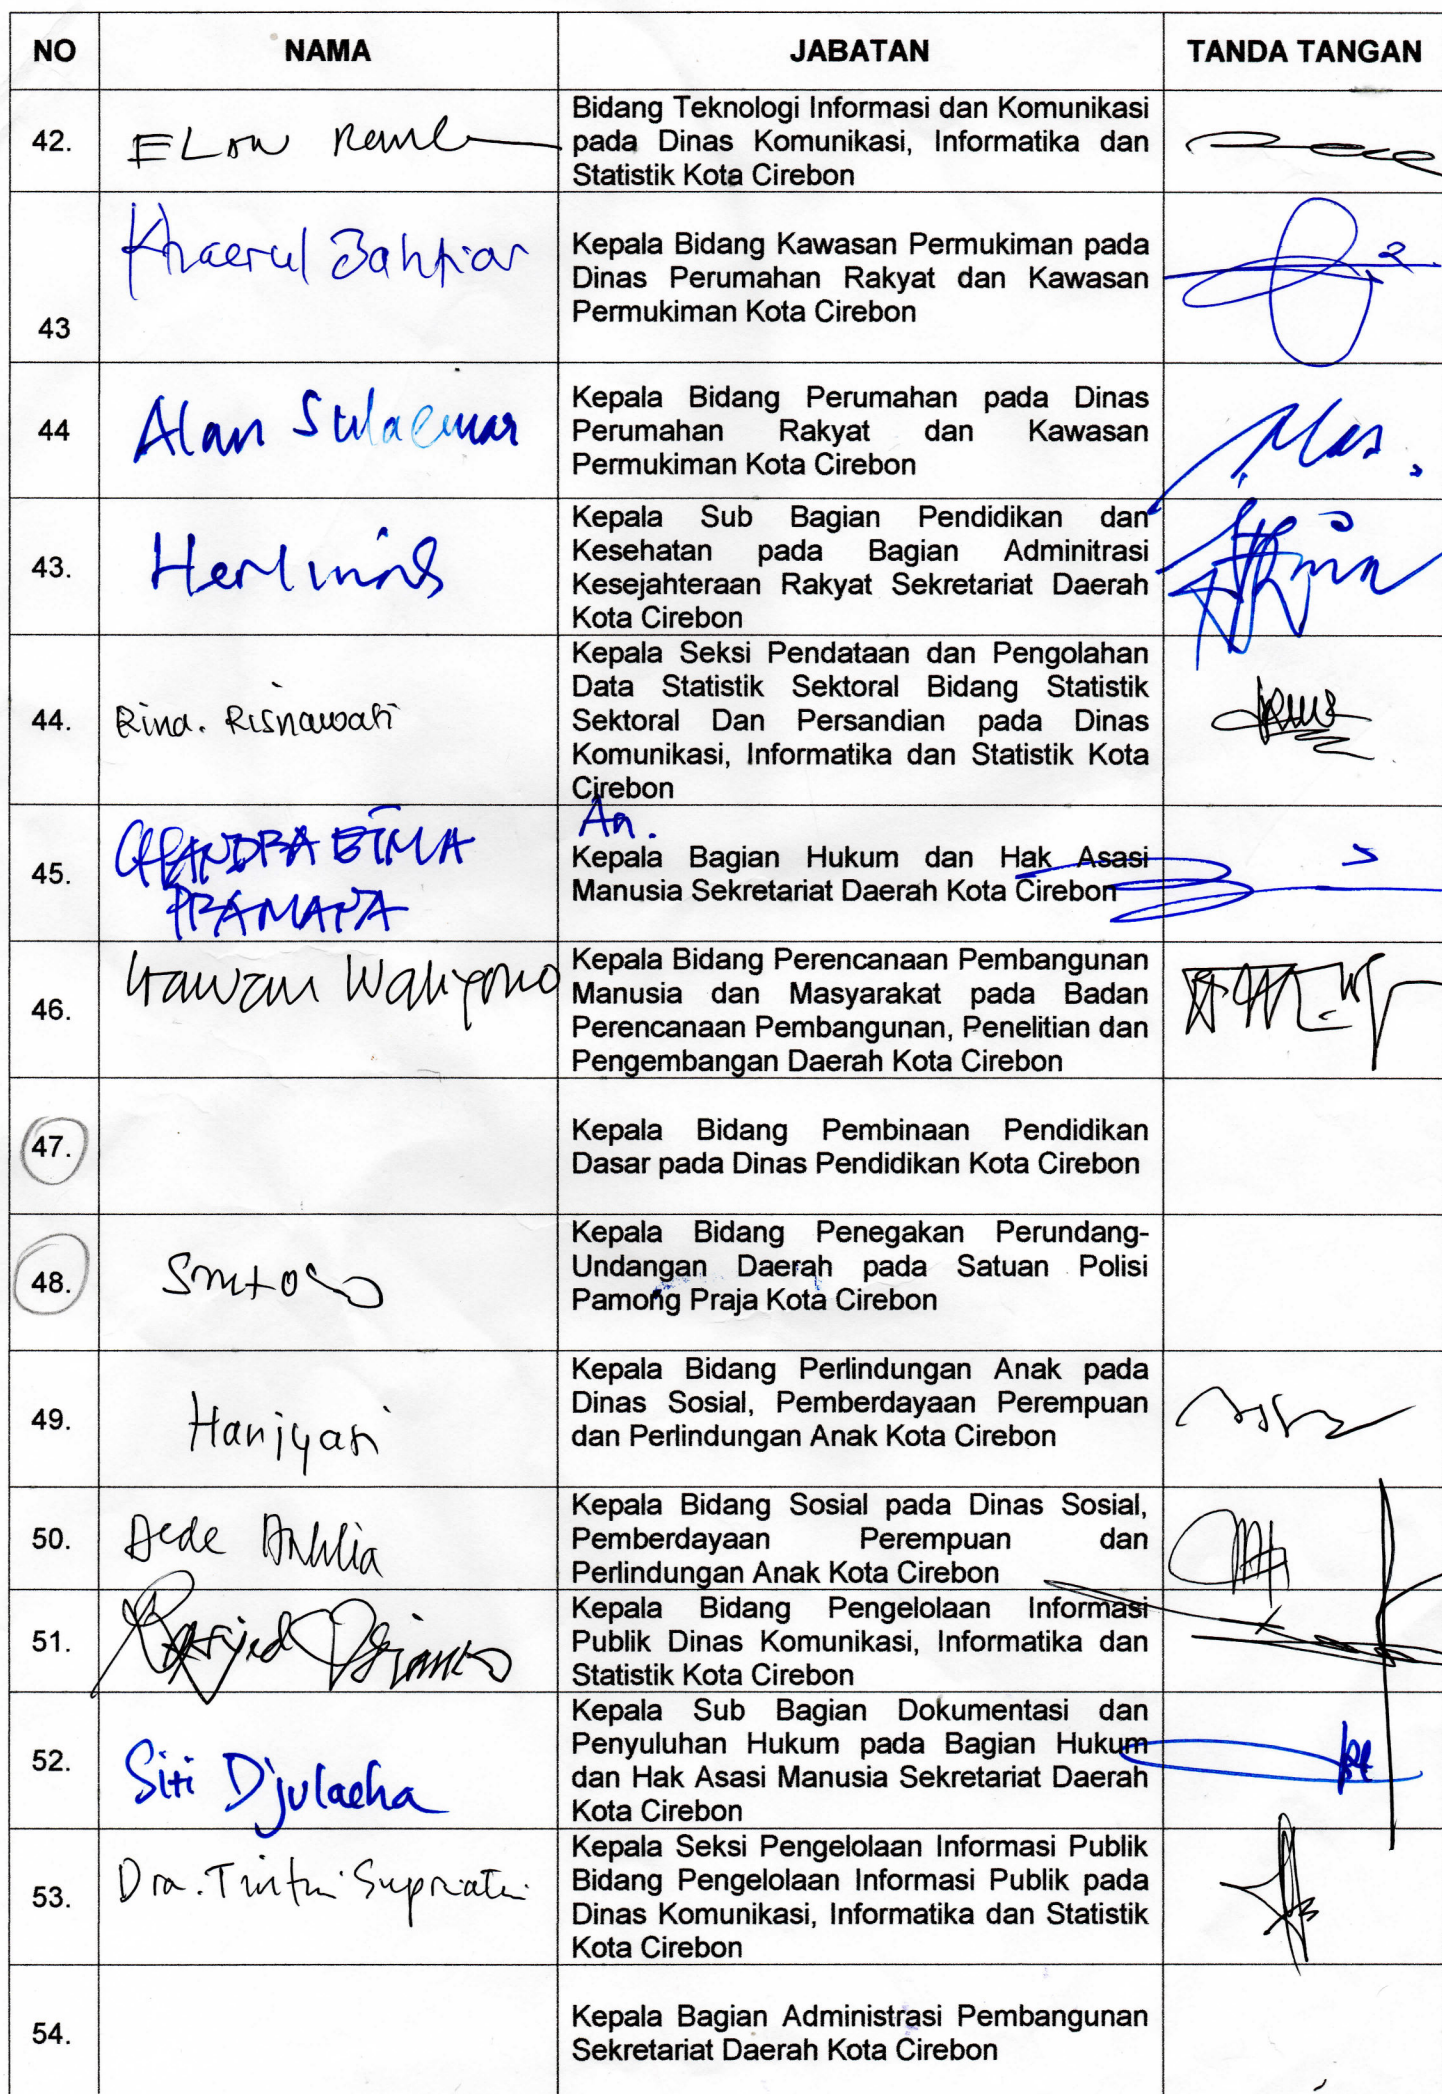 NO NAMA JABATAN TANDA TANGAN
Bidang Teknologi Informasi dan Komunikasi
42. ELON pada Dinas Komunikasi, Informatika dan
Statistik Kota Cirebon
Khaerul Bahtiar
Kepala Bidang Kawasan Permukiman pada
Dinas Perumahan Rakyat dan Kawasan
43 Permukiman Kota Cirebon
Kepala Bidang Perumahan pada Dinas
44 Alan Sulaeman Perumahan Rakyat dan Kawasan
Permukiman Kota Cirebon
Kepala Sub Bagian Pendidikan dan
43. Kesehatan pada Bagian Adminitrasi
Kesejahteraan Rakyat Sekretariat Daerah
Kota Cirebon
Kepala Seksi Pendataan dan Pengolahan
Data Statistik Sektoral Bidang Statistik
44. Rina. Risnawati Sektoral Dan Persandian pada Dinas
Komunikasi, Informatika dan Statistik Kota
Cirebon
CHANDRA BIMA An.
45. PRAMANA Kepala Bagian Hukum dan Hak Asasi
Manusia Sekretariat Daerah Kota Cirebon
Irawan Wahyono Kepala Bidang Perencanaan Pembangunan
46. Manusia dan Masyarakat pada Badan
Perencanaan Pembangunan, Penelitian dan
Pengembangan Daerah Kota Cirebon
47. Kepala Bidang Pembinaan Pendidikan
Dasar pada Dinas Pendidikan Kota Cirebon
Kepala Bidang Penegakan Perundang-
48. Undangan Daerah pada Satuan Polisi
Pamong Praja Kota Cirebon
Kepala Bidang Perlindungan Anak pada
49. Haniyati Dinas Sosial, Pemberdayaan Perempuan
dan Perlindungan Anak Kota Cirebon
Kepala Bidang Sosial pada Dinas Sosial,
50. Aede Pemberdayaan Perempuan dan
Perlindungan Anak Kota Cirebon
Kepala Bidang Pengelolaan Informasi
51. Publik Dinas Komunikasi, Informatika dan
Statistik Kota Cirebon
Kepala Sub Bagian Dokumentasi dan
52. Siti Djulaeha Penyuluhan Hukum pada Bagian Hukum
dan Hak Asasi Manusia Sekretariat Daerah
Kota Cirebon
Kepala Seksi Pengelolaan Informasi Publik
53. Dra. Tintin Supriatin Bidang Pengelolaan Informasi Publik pada
Dinas Komunikasi, Informatika dan Statistik
Kota Cirebon
54. Kepala Bagian Administrasi Pembangunan
Sekretariat Daerah Kota Cirebon